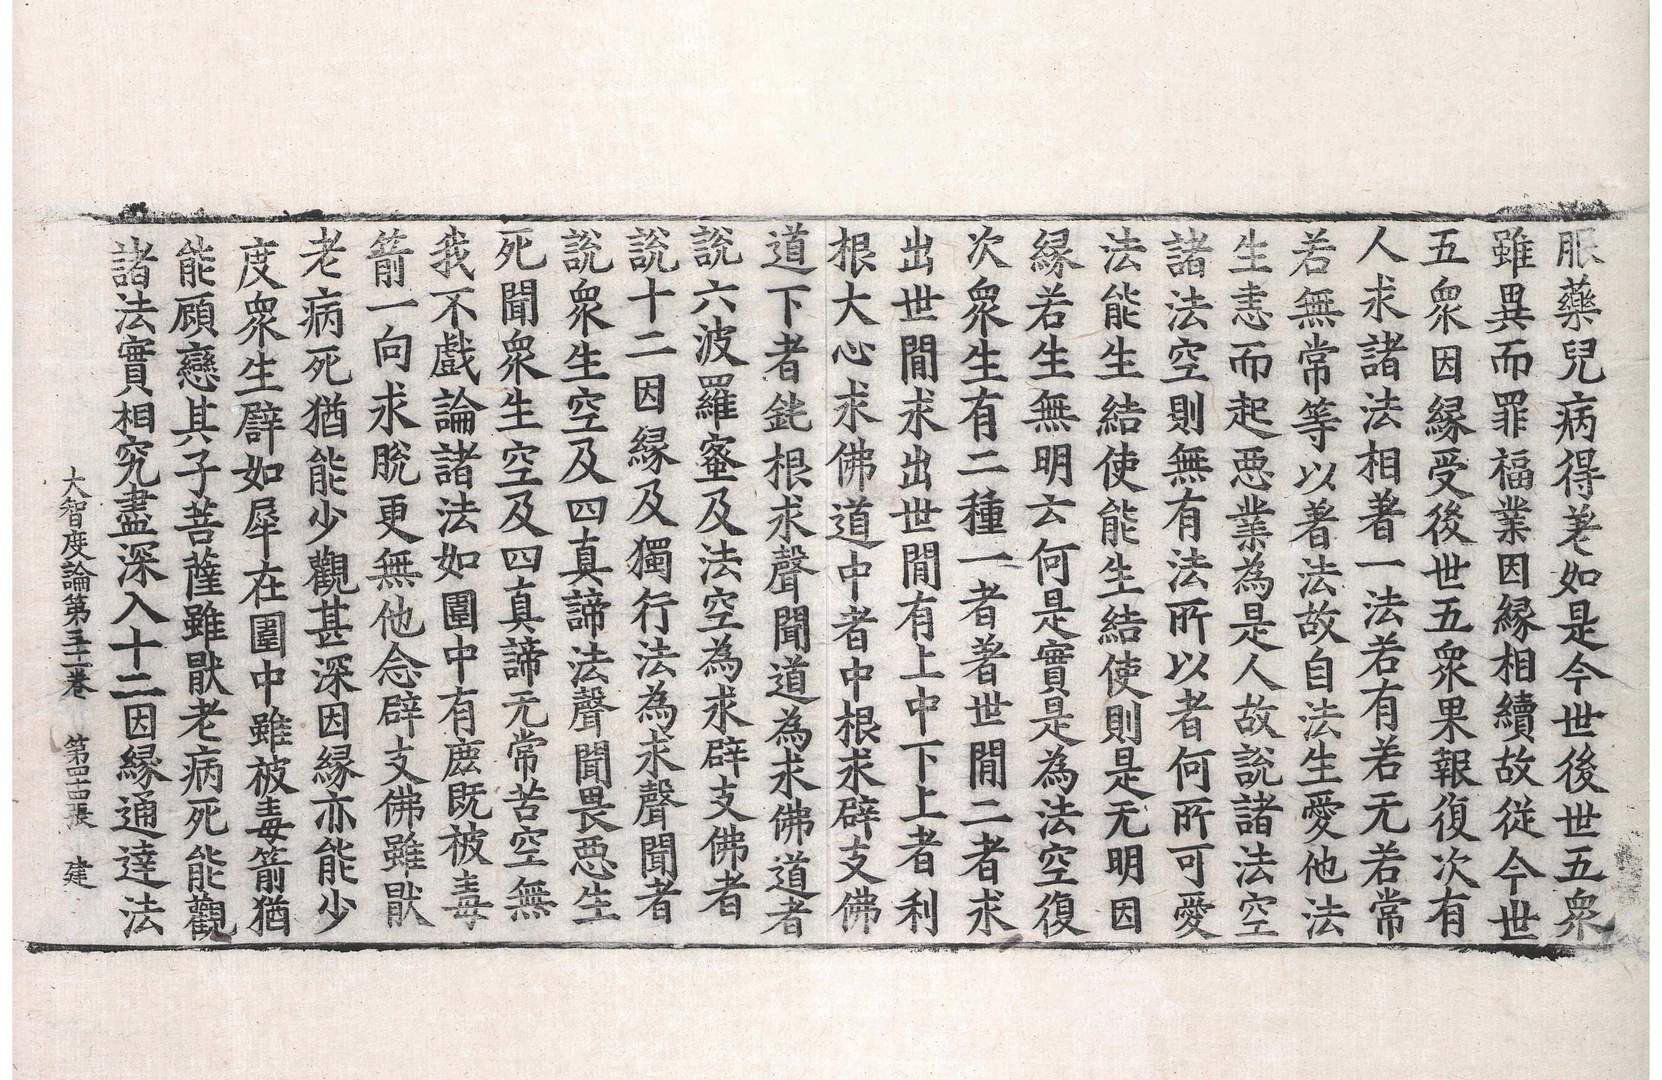 服藥兒病得差如是今世後世五衆
雖異而罪福業因緣相續故從今世
五衆因緣受後世五衆果報復次有
人求諸法相著一法若有若无若常
若無常等以著法故自法生愛他法
生恚而起惡業為是人故說諸法空
諸法空則無有法所以者何所可愛
法能生結使能生結使則是无明因
緣若生無明云何是實是為法空復
次衆生有二種一者著世間二者求
出世間求出世間有上中下上者利
根大心求佛道中者中根求辟支佛
道下者鈍根求聲聞道為求佛道者
說六波羅蜜及法空為求辟支佛者
說十二因緣及獨行法為求聲聞者
說衆生空及四真諦法聲聞畏惡生
死聞衆生空及四真諦无常苦空無
我不戲論諸法如圍中有鹿既被毒
箭一向求脫更無他念辟支佛雖猒
老病死猶能少觀甚深因緣亦能少
度衆生辟如犀在圍中雖被毒箭猶
能顧戀其子菩薩雖猒老病死能觀
諸法實相究盡深入十二因緣通達法
大智度論第三十一卷 第四十四張 建